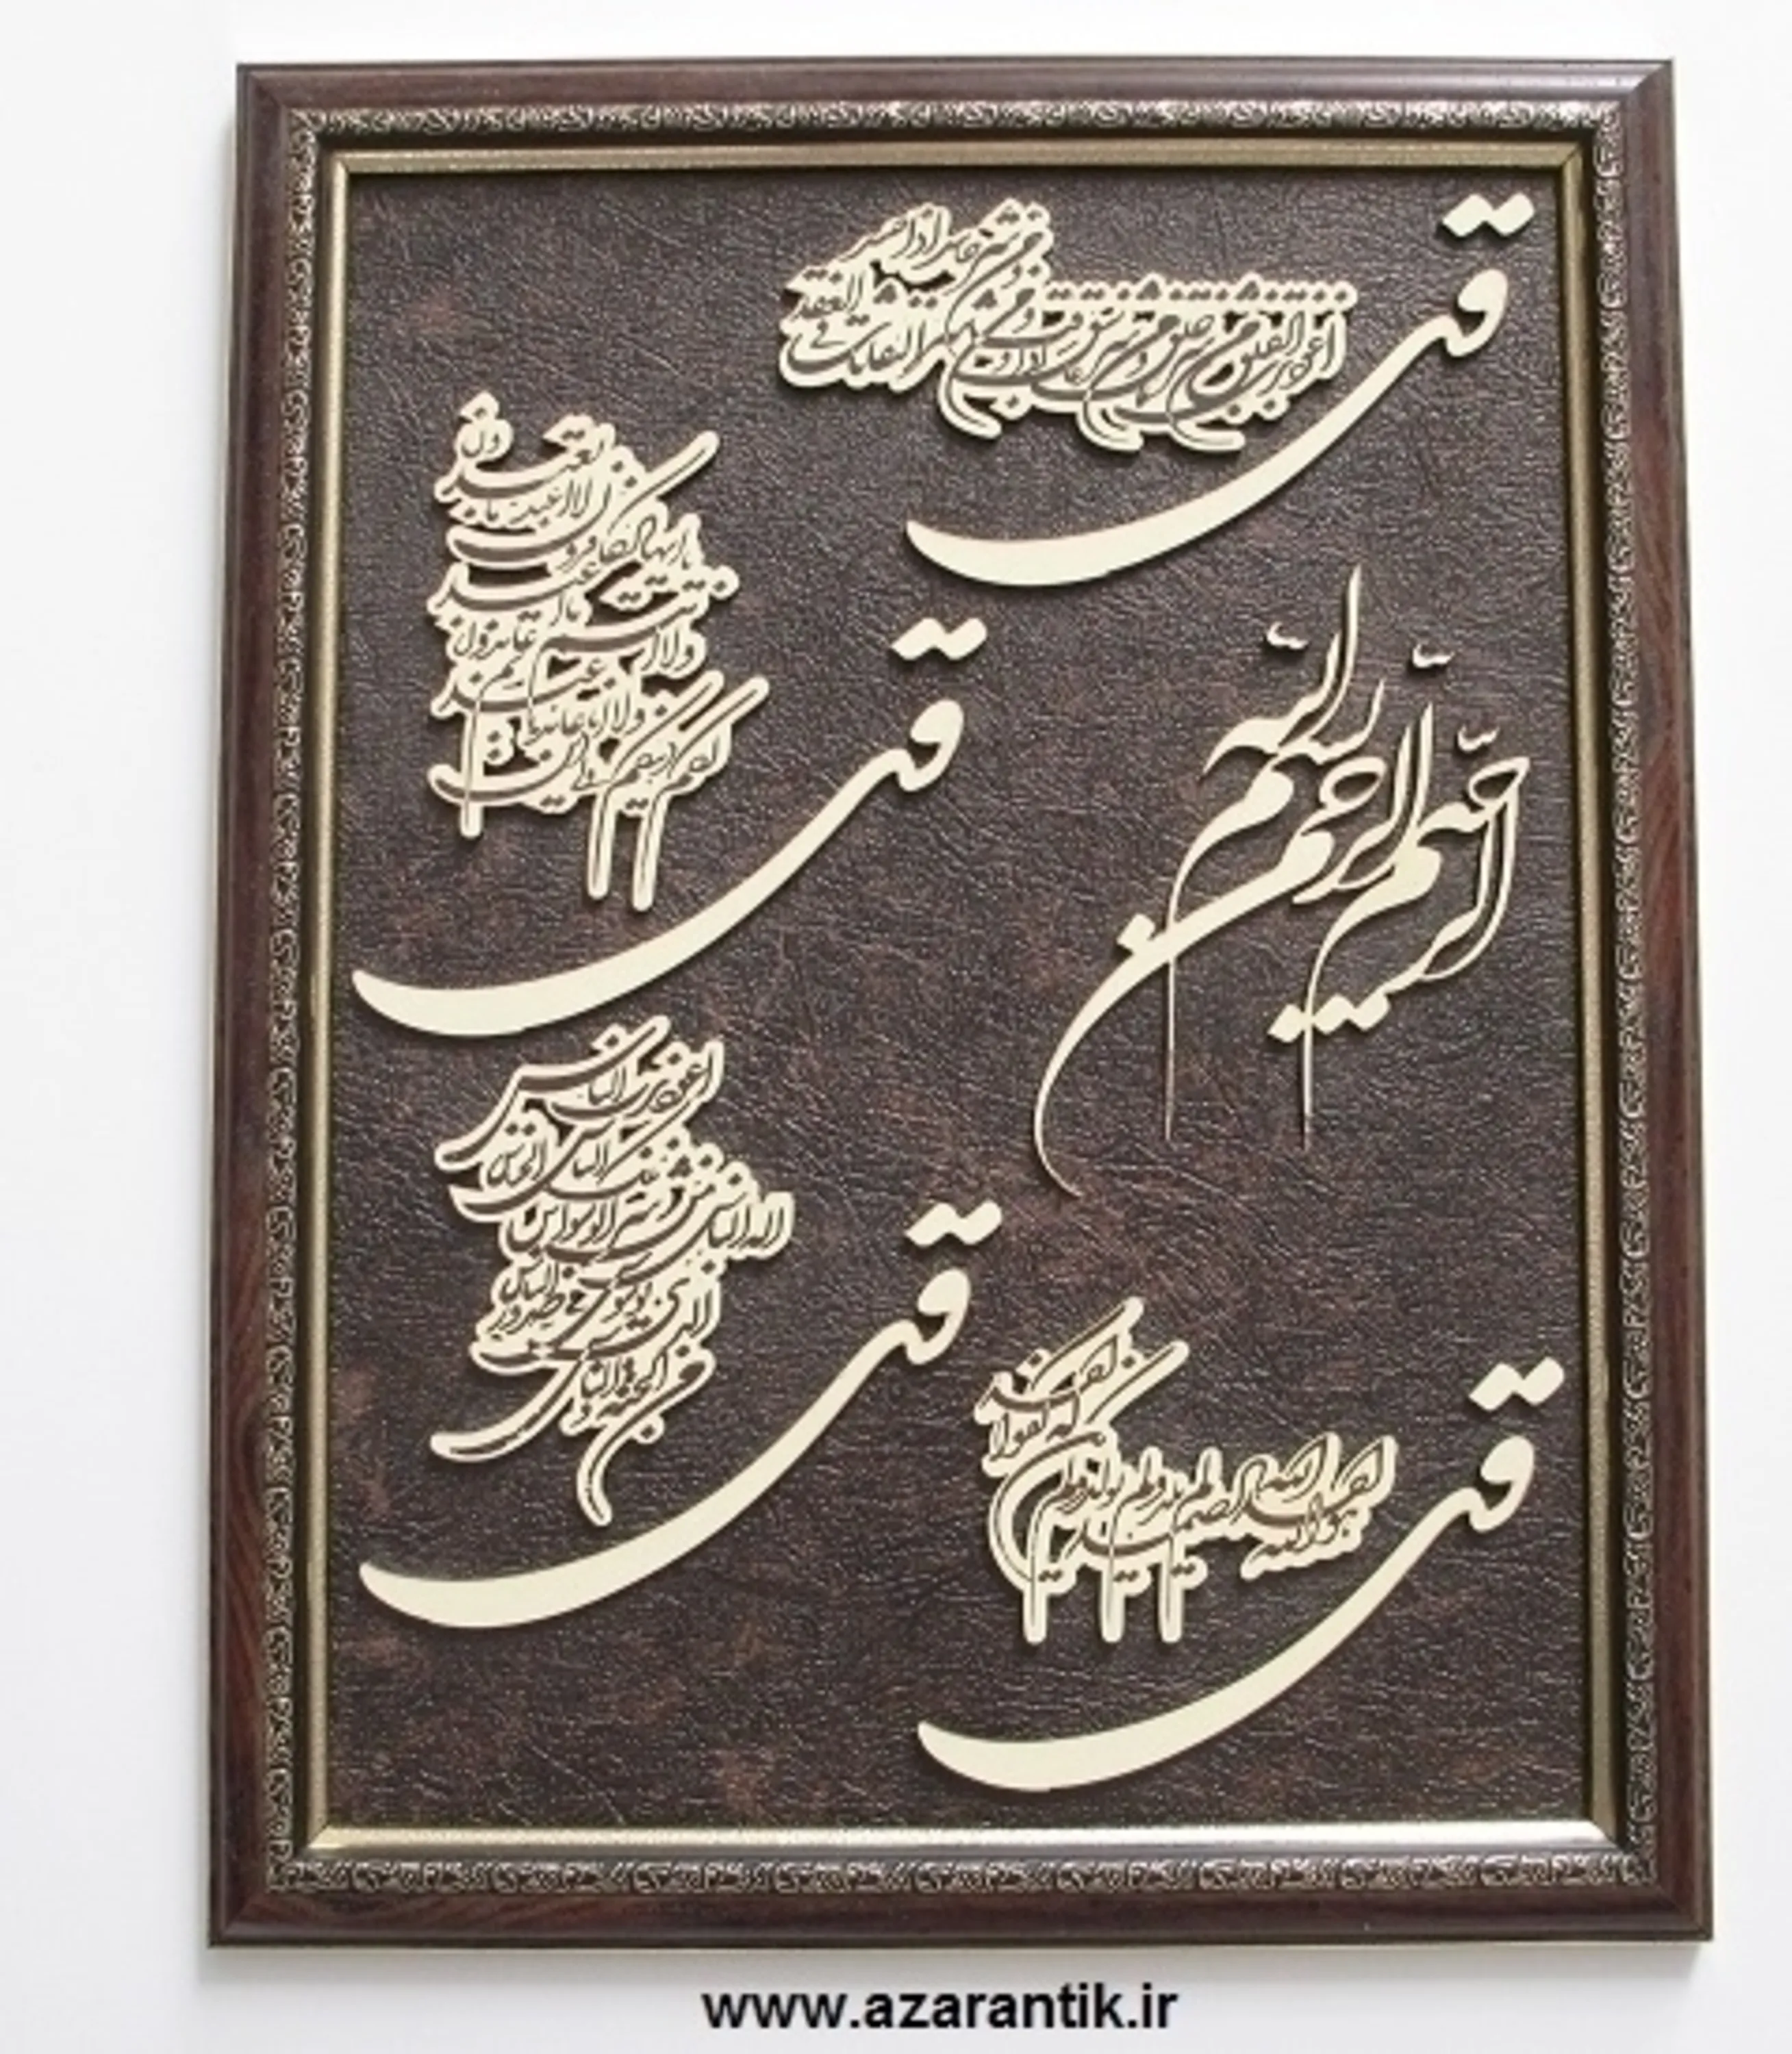 قل
اعوذ برب الفلق من شر ما خلق و من شر غاسق اذا وقب و من شر النفاثات فی العقد
و من شر حاسد اذا حسد
قل
یا ایها الکافرون لا اعبد ما تعبدون
و لا انتم عابدون ما اعبد
و لا انا عابد ما عبدتم
لکم دینکم ولی دین
بسم الله الرحمن الرحیم
قل
اعوذ برب الناس
ملک الناس
اله الناس من شر الوسواس الخناس
الذی یوسوس فی صدور الناس
من الجنة و الناس
قل
هو الله احد الله الصمد لم یلد و لم یولد و لم یکن
له کفوا احد
www.azarantik.ir